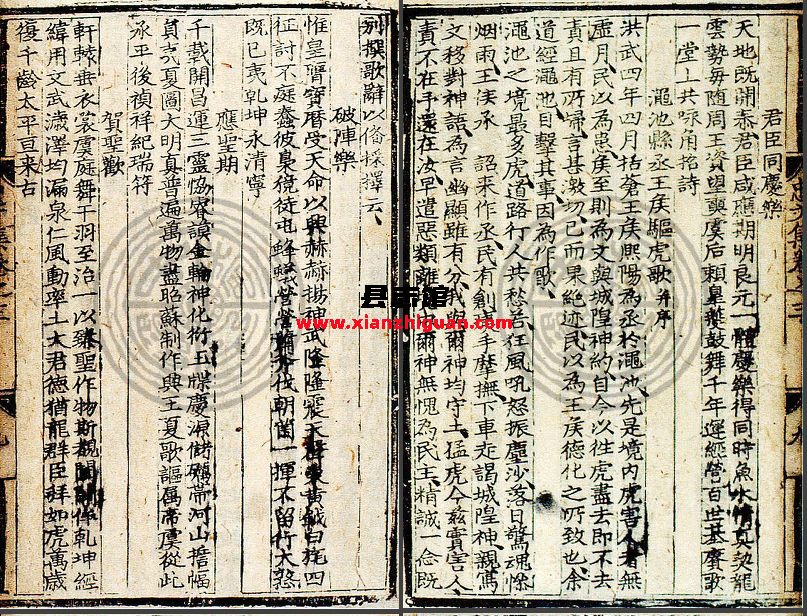 別撰歌辭以備採擇云
破陣樂
惟皇膺寶曆受天命以興赫赫揚神武隆隆震天聲黃鉞白旄四
征討不庭蠢彼梟獍徒屯蜂蟻營營蕭斧伐朝菌一揮不留行大憝
既已夷乾坤永清寧
應聖期
千載開昌運三靈協睿謨金輪神化衍玉牒慶源儲礪帶河山擔幅
員克夏圖大明真普遍萬物盡昭蘇制作興王夏歌謳萬帝虞從此
承平後禎祥紀瑞符
賀聖歡
軒轅垂衣裳虞庭舞干羽至治一以臻聖作物斯覩開闢係乾坤經
緯用文武濊澤均漏泉仁風動率土大君德猶龍群臣拜如虎萬歲
復千齡太平亘来古
君臣同慶樂
天地既開泰君臣咸應期明良元一體慶樂得同時魚水情真契龍
雲勢每随周王資望奭虞后頼皋夔鼓舞千年運經營百世基賡歌
一堂上共咏角招詩
澠池縣丞王侯驅虎歌并序
洪武四年四月括蒼王侯熙陽為丞於澠池先是境内虎害人者無
虚月民以為患侯至則為文與城隍神約自今以徃虎盡去即不去
責且有所歸言甚激切已而果絶迹民以為王侯德化之所致也余
道經澠池目擊其事因為作歌
澠池之境最多虎道路行人共愁苦狂風吼怒振塵沙落日驚魂惨
烟雨王侯承詔来作丞民有創痍手摩撫下車走謁城隍神親寫
文移對神語為言幽顯雖有分我與爾神均守土猛虎今兹實害人
責不在予還在汝早遣惡類離山中爾神無愧為民主精誠一念既
卷之三
九
县志馆
www.xianzhiguan.com